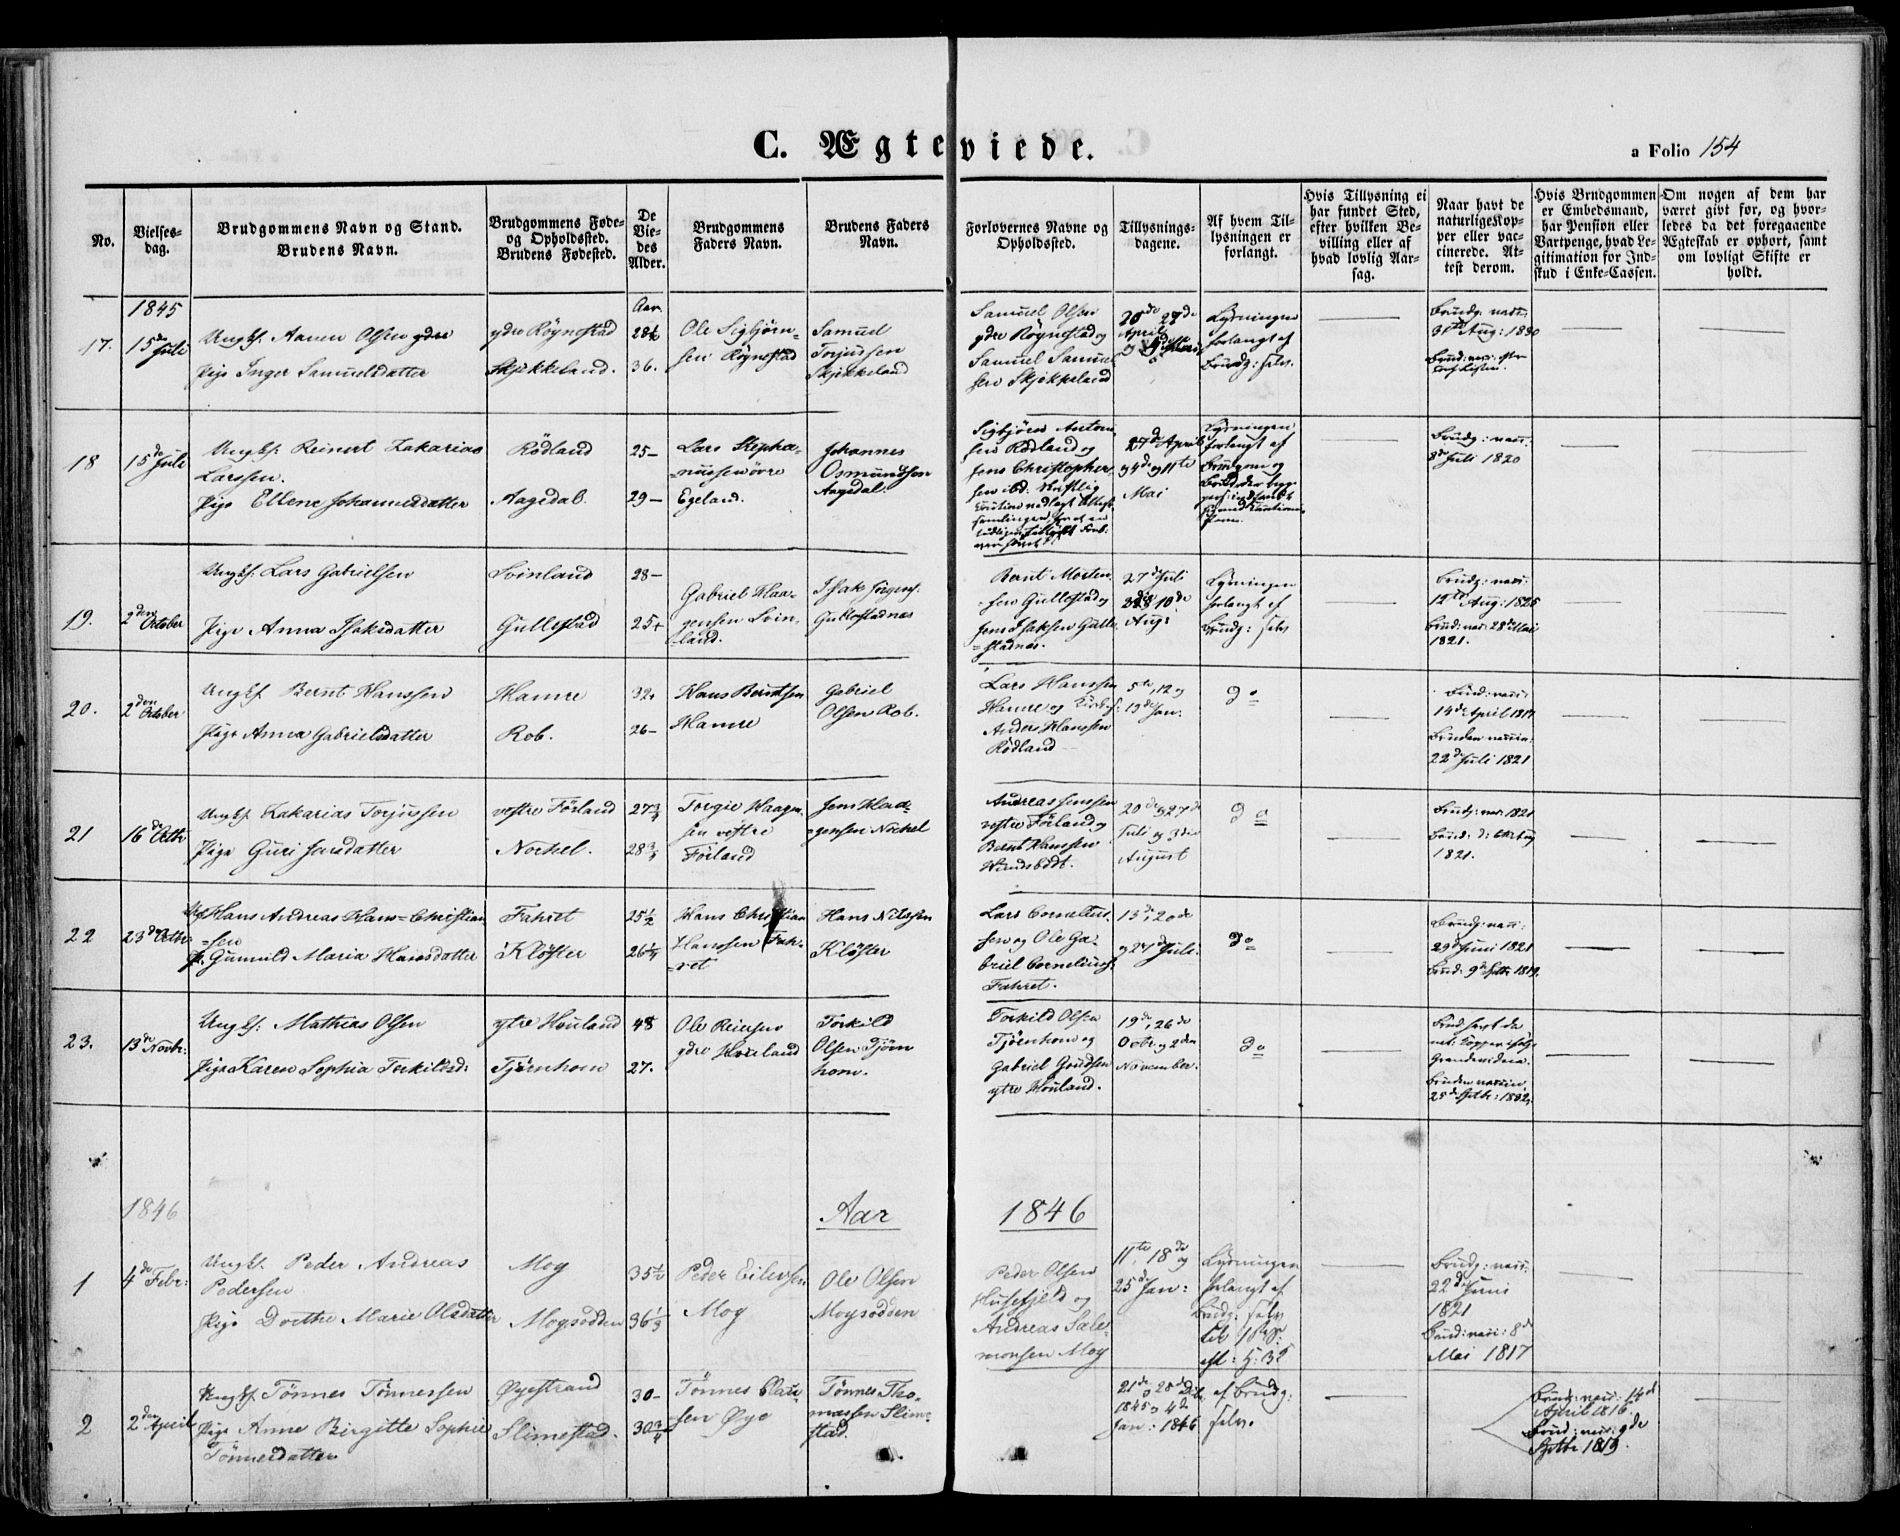 C. Ægteviede.
a Folio 154
No.
Vielses-
dag.
Brudgommens Navn og Stand.
Brudens Navn.
Brudgommens Føde-
og Opholdssted.
Brudens Fødested.
De
Vie-
des
Alder.
Brudgommens
Faders Navn.
Brudens Faders
Navn.
Forlovernes Navne og
Opholdssted.
Tillysnings-
dagene.
Af hvem Til-
lysningen er
forlangt.
Hvis Tillysning ei
har fundet Sted,
efter hvilken Be-
villing eller af
hvad lovlig Aar-
sag.
Naar havt de
naturlige Kop-
per eller vac-
cinerede. At-
test derom.
Hvis Brudgommen
er Embedsmand,
har Pension eller
Vartpenge, hvad Le-
gitimation for Ind-
skud i Enke-Cassen.
Om nogen af dem har
været givt før, og hvor-
ledes da det foregaaende
Ægteskab er ophørt, samt
om lovligt Skifte er
holdt.
1845
Aar
17.
15de Juli
Ungkf. Aanen Olsen ydre
Pige Inger Samuelsdatter
ydre Røynestad
Skjekkeland.
28
36.
Ole Sigbjørn-
sen Røynestad
Samuel
Torjussen
Skjekkeland
Samuel Olsen
ydre Røynestad og
Samuel Samuel-
sen Skjekkeland
20de 27de
April
Lysningen
forlangt af
Brudg: selv.
Brudg. vacc:
Aug: 1830
18
15de Juli
Ungkf. Reinert Zakarias
Larssen.
Pige Ellene Johannesdatter
Rödland
Aagedal.
25-
29-
Lars Stepha-
=nussen övre
Egeland.
Johannes
Osmundsen
Aagedal.
Sigbjörn Anton-
sen Rödland og
Jens Christopher-
sen ibd.
27de April
og 4de og 11te
Mai
Lysningen
forlangt af
Brudgom og
Brudg: vacc:
8de Juli 1820
19.
2den October
Ungkf: Lars Gabrielsen
Pige Anna Isaksdatter
Svinland
Gullestad
28-
25
Gabriel Haa-
gensen Svin-
land.
Isak Jörgens:
Gullestadnes
Bernt Morten-
sen Gullestad og
Jens Isaksen Gulle-
=stadnes.
27de Juli
3de 10de
Aug:
Lysningen
forlangt af
Brudg: selv
Brudg: vacc:
12te Aug: 1826
Brud: vacc: 28de Mai
1821.
20.
2den October
Ungkf. Bernt Hanssen
Pige Anna Gabrielsdatter
Hamre
Rob.
32.
26-
Hans Berntsen
Hamre
Gabriel
Olsen Rob.
Lars Hanssen
Hamre og
Anders Hanssen
Rödland
5te, 12 og
19de Jan:
do
14de April 1819
Bruden vaccin:
22de Juli 1821
21
16de Octbr
Ungkf. Zakarias Torjussen
Pige Guri Jensdatter
vestre Förland
Norhel.
27 3/4
28 3/4
Torgie Haagen-
sen vestre
Förland
Jens Haa-
gensen Norhel
Andreas Jenssen
vestre Förland og
Bernt Hanssen
20de og 27de
Juli og 3die
August
do
Brudg: vac: 1821
1821.
22
23de Octbr
Ungkf Hans Andreas Hans=Christian
=sen
P. Gunuld Maria Hansdatter
Fahret
Kløster
25 1/2
26 1/4
Hans Christian
Hanssen Fah-
ret
Hans Nilssen
Kløster
Lars Cornelius-
sen og Ole Ga-
briel Corneliuss:
Fahret.
13de, 20de
og 27de Juli:
do
Brudg: vacc:
29de Juni 1821
Brud: 9de Septbr 1819.
23.
13de Novbr:
Ungkf: Mathias Olsen
Pige Karen Sophia Torkildsd:
ytre Houland
Tjørnhom
48
27.
Ole Reiersen
ydre Houland
Torkild
Olsen Tjørn
hom.
Torkild Olsen
Tjørnhom og
Gabriel Gundsen
ytre Houland.
19de, 26de
Octbr og 2den
November.
do
Bruden vaccin.
25de Septbr: 1832.
1846
Aar
1846
1
4de Febr:
Ungkf. Peder Andreas
Pedersen
Pige Dorthe Marie Olsdatter
Moy
Moysodden
35 1/2
36 1/3
Peder Eilersen
Moy
Ole Olsen
Moysodden
Peder Olsen
Husefjeld og
Andreas Sale-
monsen Moy
11te, 18de og
25de Jan:
Lysningen
forlangt af
Brudg: selv
Brudg: vacc:
22de Juni
1821
Brud: vacc: 8de
Mai 1817
2
2den April
Ungkf. Tönnes Tönnessen
Pige Anne Birgitte Sophie
Tönnesdatter
Øyestrand
Slimestad.
30-
30 3/4
Tönnes Clau-
sen Øye
Tönnes Tho-
massen Slime-
stad.
21de 28de Dcbr
1845 og 4de
Jan: 1846
af Brudg:
selv.
Brudg: vacc: 14de
April 1816
Brud: vacc: 9de
Septbr 1819.